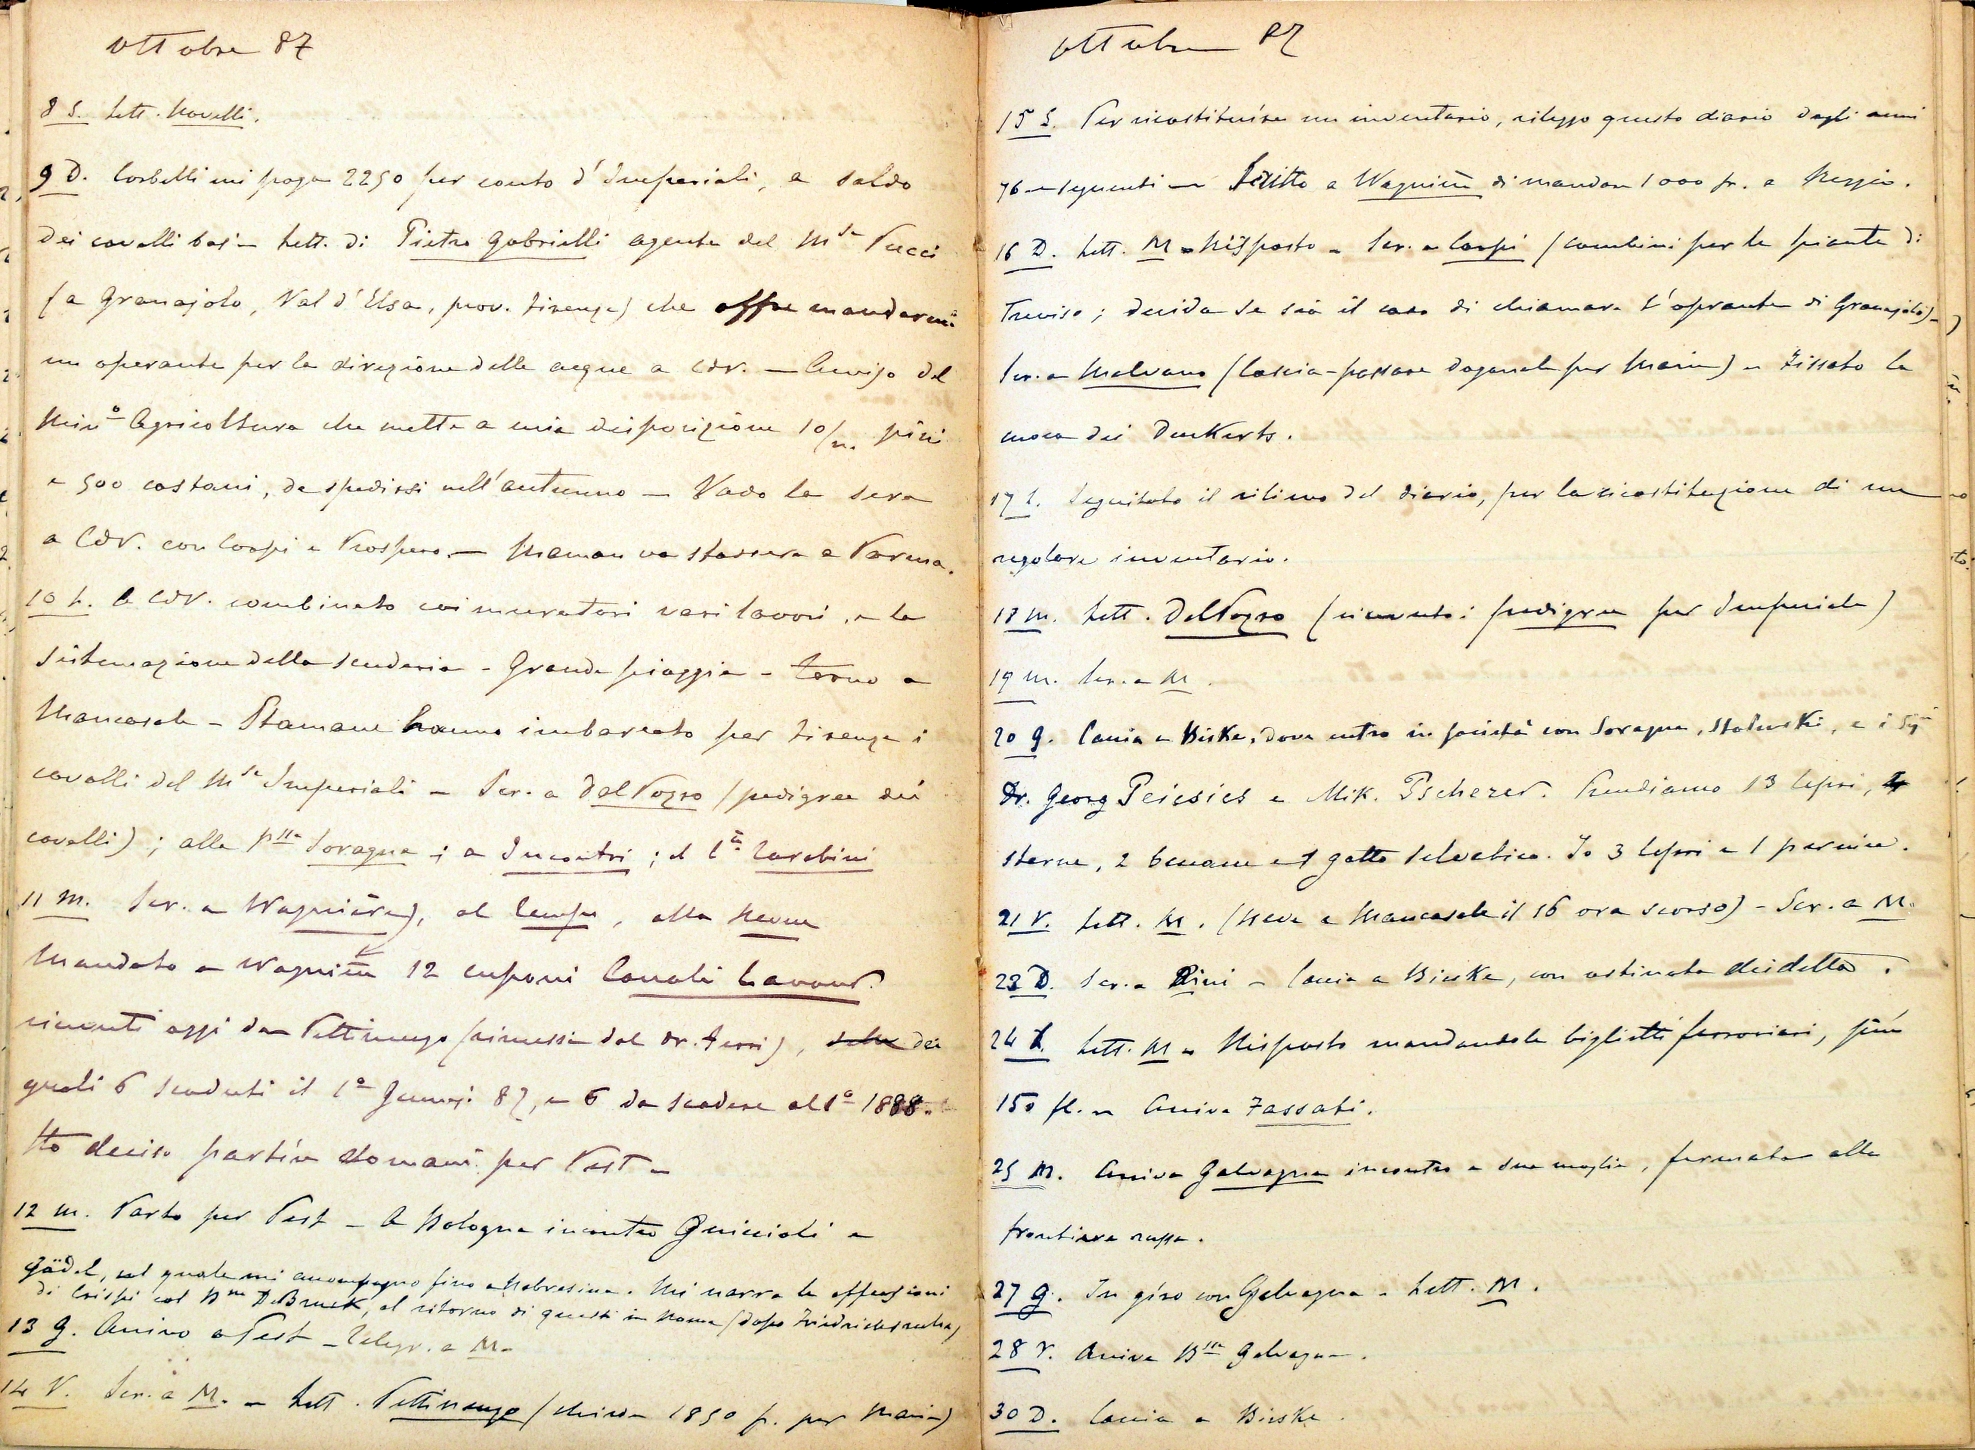 ottobre 87
8 S. Lett. Novelli.
9 D. Corbelli mi paga 2250 per conto d'Imperiali, a saldo
dei cavalli bai – Lett. di Pietro Gabrielli agente del Mse Pucci
(a Granajolo, Val d'Elsa, prov. Firenze) che offre mandarmi
un operante per la direzione delle acque a CdV. – Avviso del
Mino Agricoltura che mette a mia disposizione 10/m. pini
e 500 castani, da spedirsi nell'autunno – Vado la sera
a CdV. con Corpi e Prospero. – Maman va stassera a Parma.
10 L. A CdV. combinato coi muratori vari lavori, e la
sistemazione della scuderia – Grande pioggia – Torno a
Mancasale – Stamane hanno imbarcato per Firenze i
cavalli del Mse Imperiali – Scr. a Dal Pozzo (pedigree dei
cavalli); alla Pssa Soragna; a Incontri; al Cte Zarabini
11 M. Scr. a Wagnière, al Temps, alla Revue
Mandato a Wagnière 12 cuponi Canali Cavour.
ricevuti oggi da Pettinengo (rimessi dal dr. Ferri), dei
quali 6 scaduti il 1o Genn. 87, e 6 da scadere al 1o 1888.
Ho deciso partire domani per Pest –
12 M. Parto per Pest – A Bologna incontro Guiccioli e
Gädel, col quale mi accompagno fino a Nabresina. Mi narra le
di Crispi col Bne De Bruck, al ritorno di questi in Roma (dopo Friedrichsruhe)
13 G. Arrivo a Pest – Telegr. a M.
14 V. Scr. a M. – Lett. Pettinengo (chiede 1850 fr. per Maria)
ottobre 87
15 S. Per ricostituire un inventario, rileggo questo diario dagli anni
76 e seguenti – Scritto a Wagnière di mandare 1000 fr. a Reggio.
16 D. Lett. M – Risposto – Scr. a Corpi (combini per le piante di
Treviso; decida se sia il caso di chiamare l'operante di Granajolo) –
Scr. a Malvano (lascia-passare doganale per Maria) – Fissato la
cuoca dei Dunkerts.
17 L. Seguitato il rilievo del diario, per la ricostituzione di un
regolare inventario.
18 M. Lett. Dal Pozzo (ricevuto i pedigree per Imperiale)
19 M. Scr. a M.
20 G. Caccia a Biske, dove entro in società con Soragna, , e i Sigi
Dr. Georg e Mik. Pscherer. Prendiamo 13 lepri, 4
starne, 2 beccacce e 1 gatto selvatico. Io 3 lepri e 1 pernice.
21 V. Lett. M. (Neve a Mancasale il 16 ora scorso) – Scr. a M.
23 D. Scr. a Pini – Caccia a Bicske, con ostinata disdetta.
24 L. Lett. M – Risposto mandandole biglietti ferroviari, più
150 fl. – Arriva Fassati.
25 M. Arriva Galvagna incontro a sua moglie, fermata alla
frontiera russa.
27 G. In giro con Galvagna – Lett. M.
28 V. Arriva Bssa Galvagna.
30 D. Caccia a Bicske.